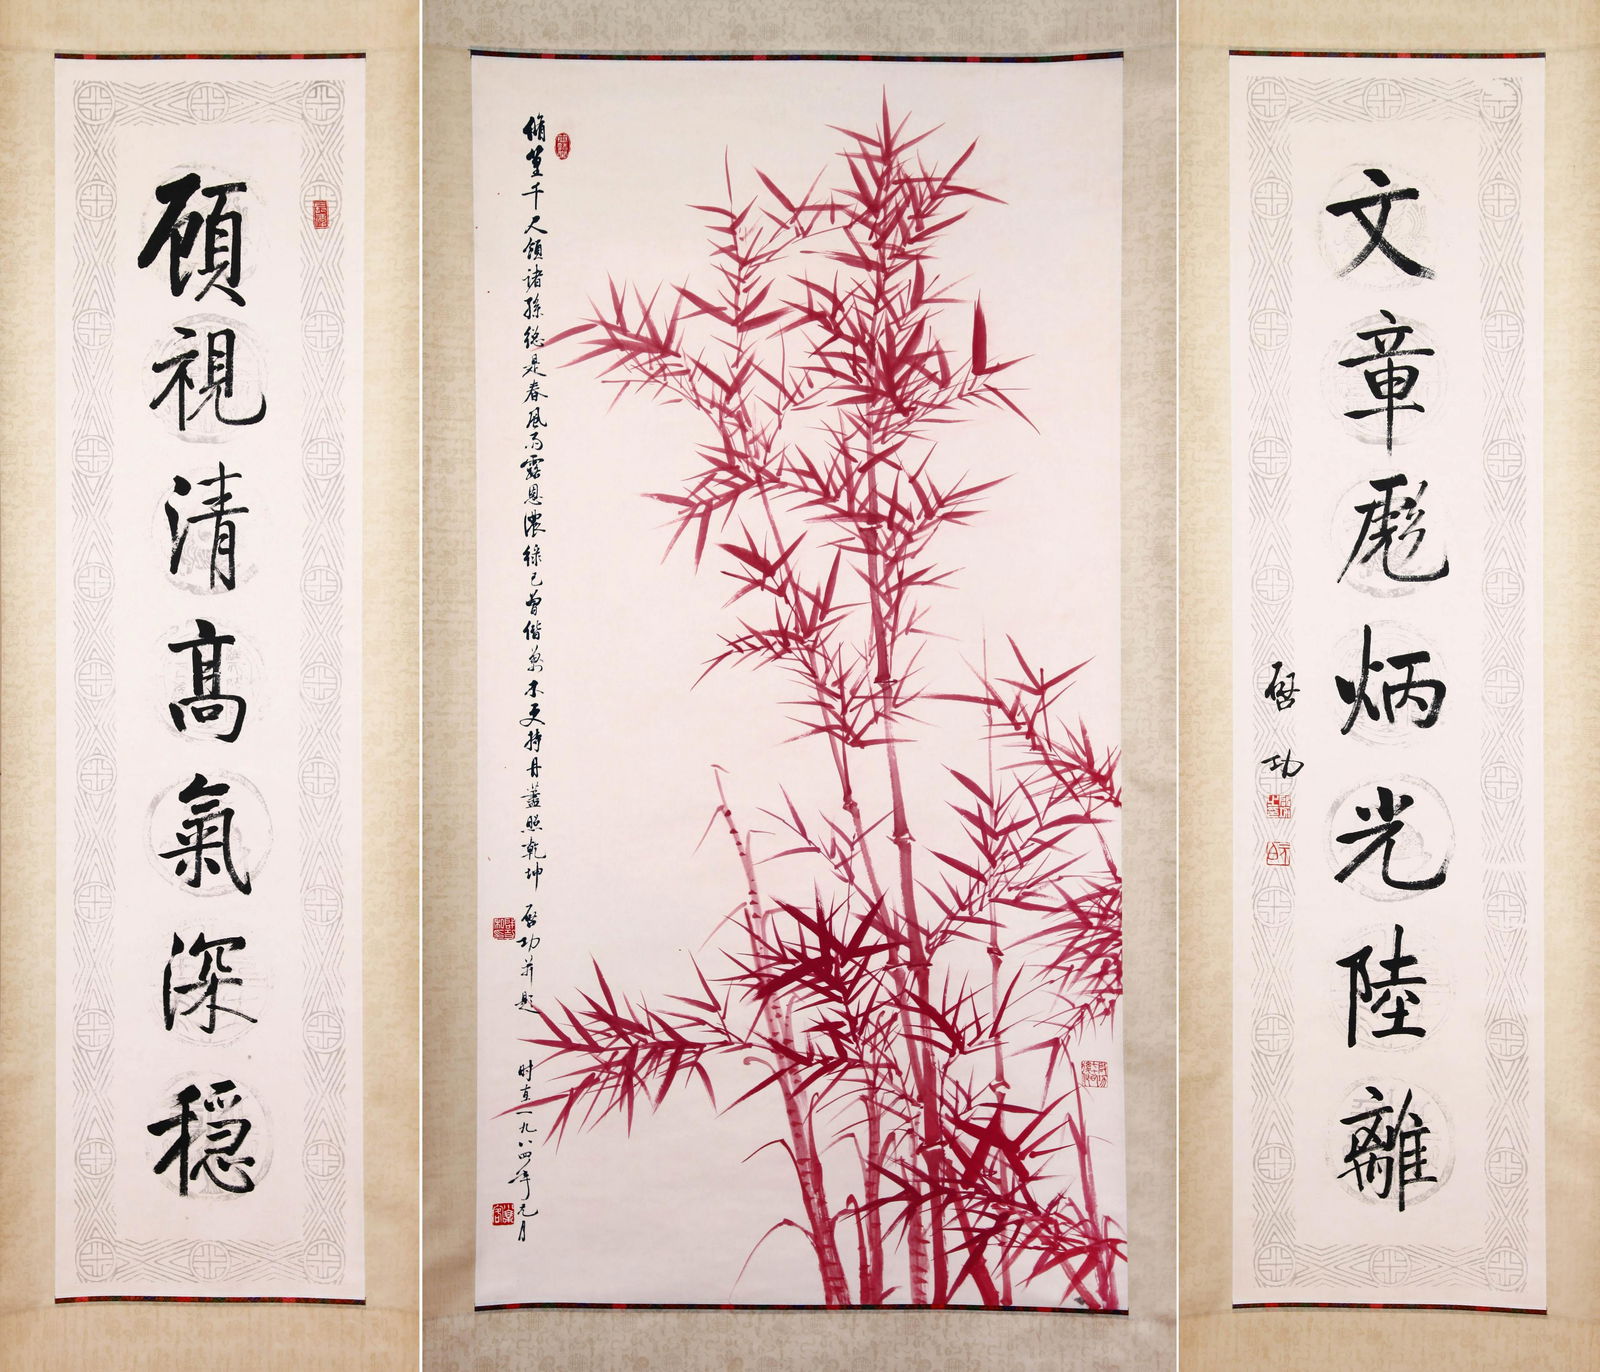 顧視清高氣深穩
脩篁千尺領諸孫総是春風雨露恩濃綠已曾偕萬木更持丹蓋照乾坤 啓功并題 时在一九八四年元月
文章彪炳光陸離
啓功